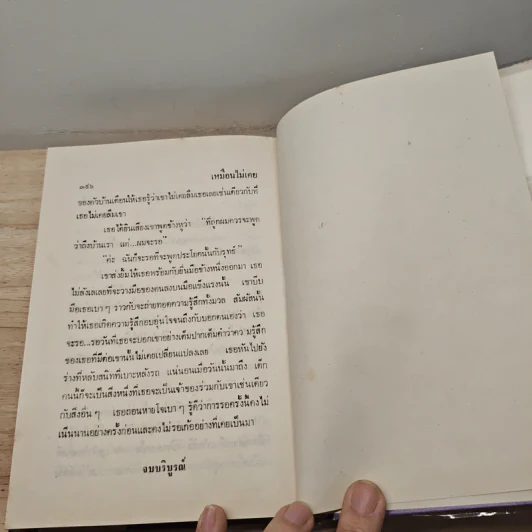 ๓๕๖
เหมือนไม่เคย
ของตัวบ้านเตือนให้เธอรู้ว่าเขาไม่เคยลืมเธอเลยเช่นเดียวกับที่
เธอไม่เคยลืมเขา
เธอได้ยินเสียงเขาพูดข้างหูว่า "ที่ถูกผมควรจะพูด
ว่าถึงบ้านเรา แต่...ผมจะรอ"
"ค่ะ ฉันก็จะรอที่จะพูดประโยคนั้นกับรุทธ์"
เขาส่งยิ้มให้เธอพร้อมกับยื่นมือข้างหนึ่งออกมา เธอ
ไม่ลังเลเลยที่จะวางมือของตนลงบนมือแข็งแรงนั้น เขาบีบ
มือเธอเบา ๆ ราวกับจะถ่ายทอดความรู้สึกทั้งมวล สัมผัสนั้น
ทำให้เธอเกิดความรู้สึกอบอุ่นใจจนถึงกับบอกตนเองว่า เธอ
จะรอ...รอวันที่เธอจะบอกเขาอย่างเต็มปากเต็มคำว่าความรู้สึก
ของเธอที่มีต่อเขานั้นไม่เคยเปลี่ยนแปลงเลย เธอหันไปยัง
ร่างที่หลับสนิทที่เบาะหลังรถ แน่นอนเมื่อวันนั้นมาถึง เด็ก
คนนี้ก็จะเป็นสิ่งหนึ่งที่เธอจะเป็นเจ้าของร่วมกับเขาเช่นเดียว
กับสิ่งอื่น ๆ เธอถอนหายใจเบา ๆ รู้ดีว่าการรอครั้งนี้คงไม่
เนิ่นนานอย่างครั้งก่อนและคงไม่รอเก้ออย่างที่เคยเป็นมา
จบบริบูรณ์